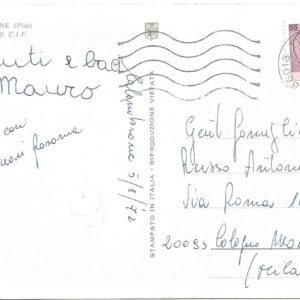 NE (Pisa)
C.I.F.
Mauro
con
Calambrone 5/8/72
STAMPATO IN ITALIA - RIPRODUZIONE VIETATA
56013
Gent. Famiglia
Russo Antonio
Via Roma
20093 Cologno Mon
(Mila